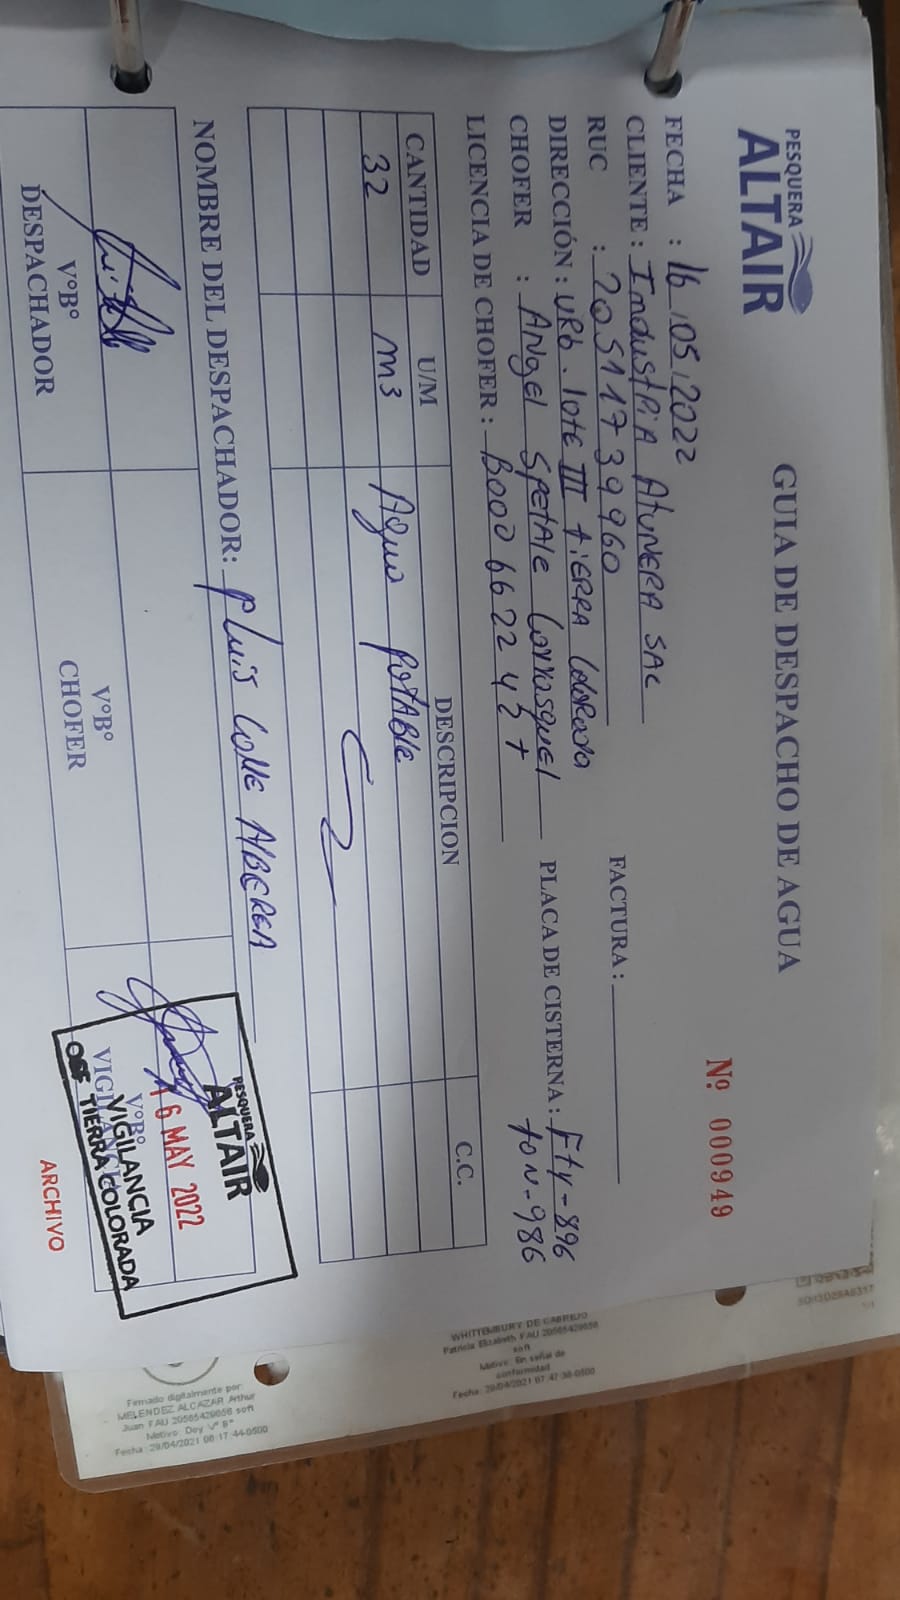 PESQUERA
ALTAIR
GUIA DE DESPACHO DE AGUA
Nº 000949
FECHA : 16.05.2022
CLIENTE : IndustRiA AtuNERA SAC
FACTURA :
RUC : 20511739960
DIRECCIÓN : URb. lote III tiERRA Colorada
CHOFER : ANgel
PLACA DE CISTERNA : Fty-896
tON-986
LICENCIA DE CHOFER :
CANTIDAD U/M DESCRIPCION C.C.
32 m3 Agua potABle
NOMBRE DEL DESPACHADOR: luis
VºBº
DESPACHADOR
VºBº
CHOFER
VºBº
PESQUERA
ALTAIR
16 MAY 2022
VIGILANCIA
TIERRA COLORADA
ARCHIVO
WHITTEMBURY DE CABREJO
Patricia Elizabeth FAU 20565429656
soft
Motivo: En señal de
conformidad
Fecha: 29/04/2021 07:47:38-0500
Firmado digitalmente por:
MELENDEZ ALCAZAR Arthur
Juan FAU 20565429656 soft
Motivo: Doy Vº Bº
Fecha: 29/04/2021 08:17:44-0500